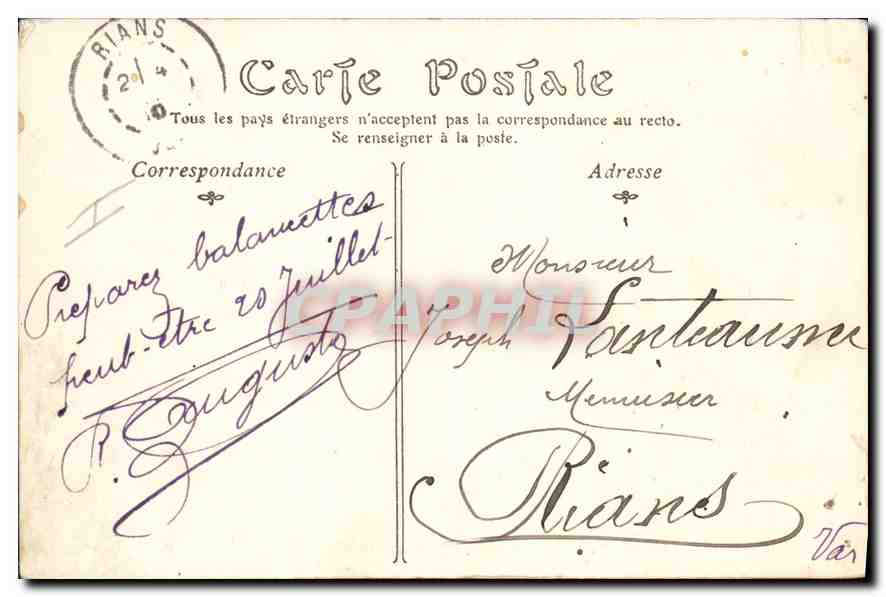 RIANS
2 4
10
Carte Postale
Tous les pays étrangers n'acceptent pas la correspondance au recto.
Se renseigner à la poste.
Correspondance
Adresse
Preparez balancettes
peut-etre 20 Juillet-
R. Augusto
Monsieur
Joseph Panteaume
Menuisier
Rians
Var
CPAPHIL